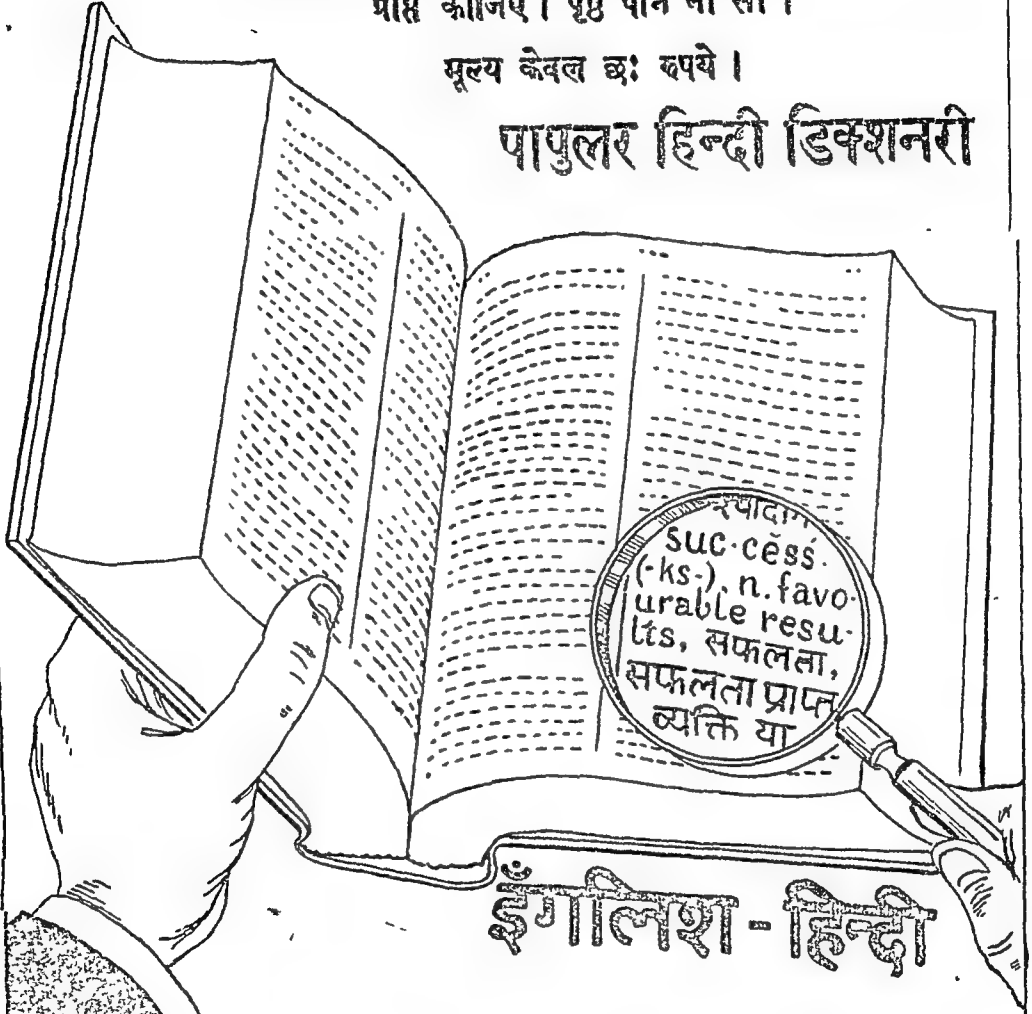 प्राप्त कीजिए। पृष्ठ पाँच सौ।
मूल्य केवल छः रुपये।
पापुलर हिन्दी डिक्शनरी
suc·cĕss
(-ks-), n. favo-
urable resu-
lts, सफलता,
सफलता प्राप्त
व्यक्ति या
इँगलिश - हिन्दी